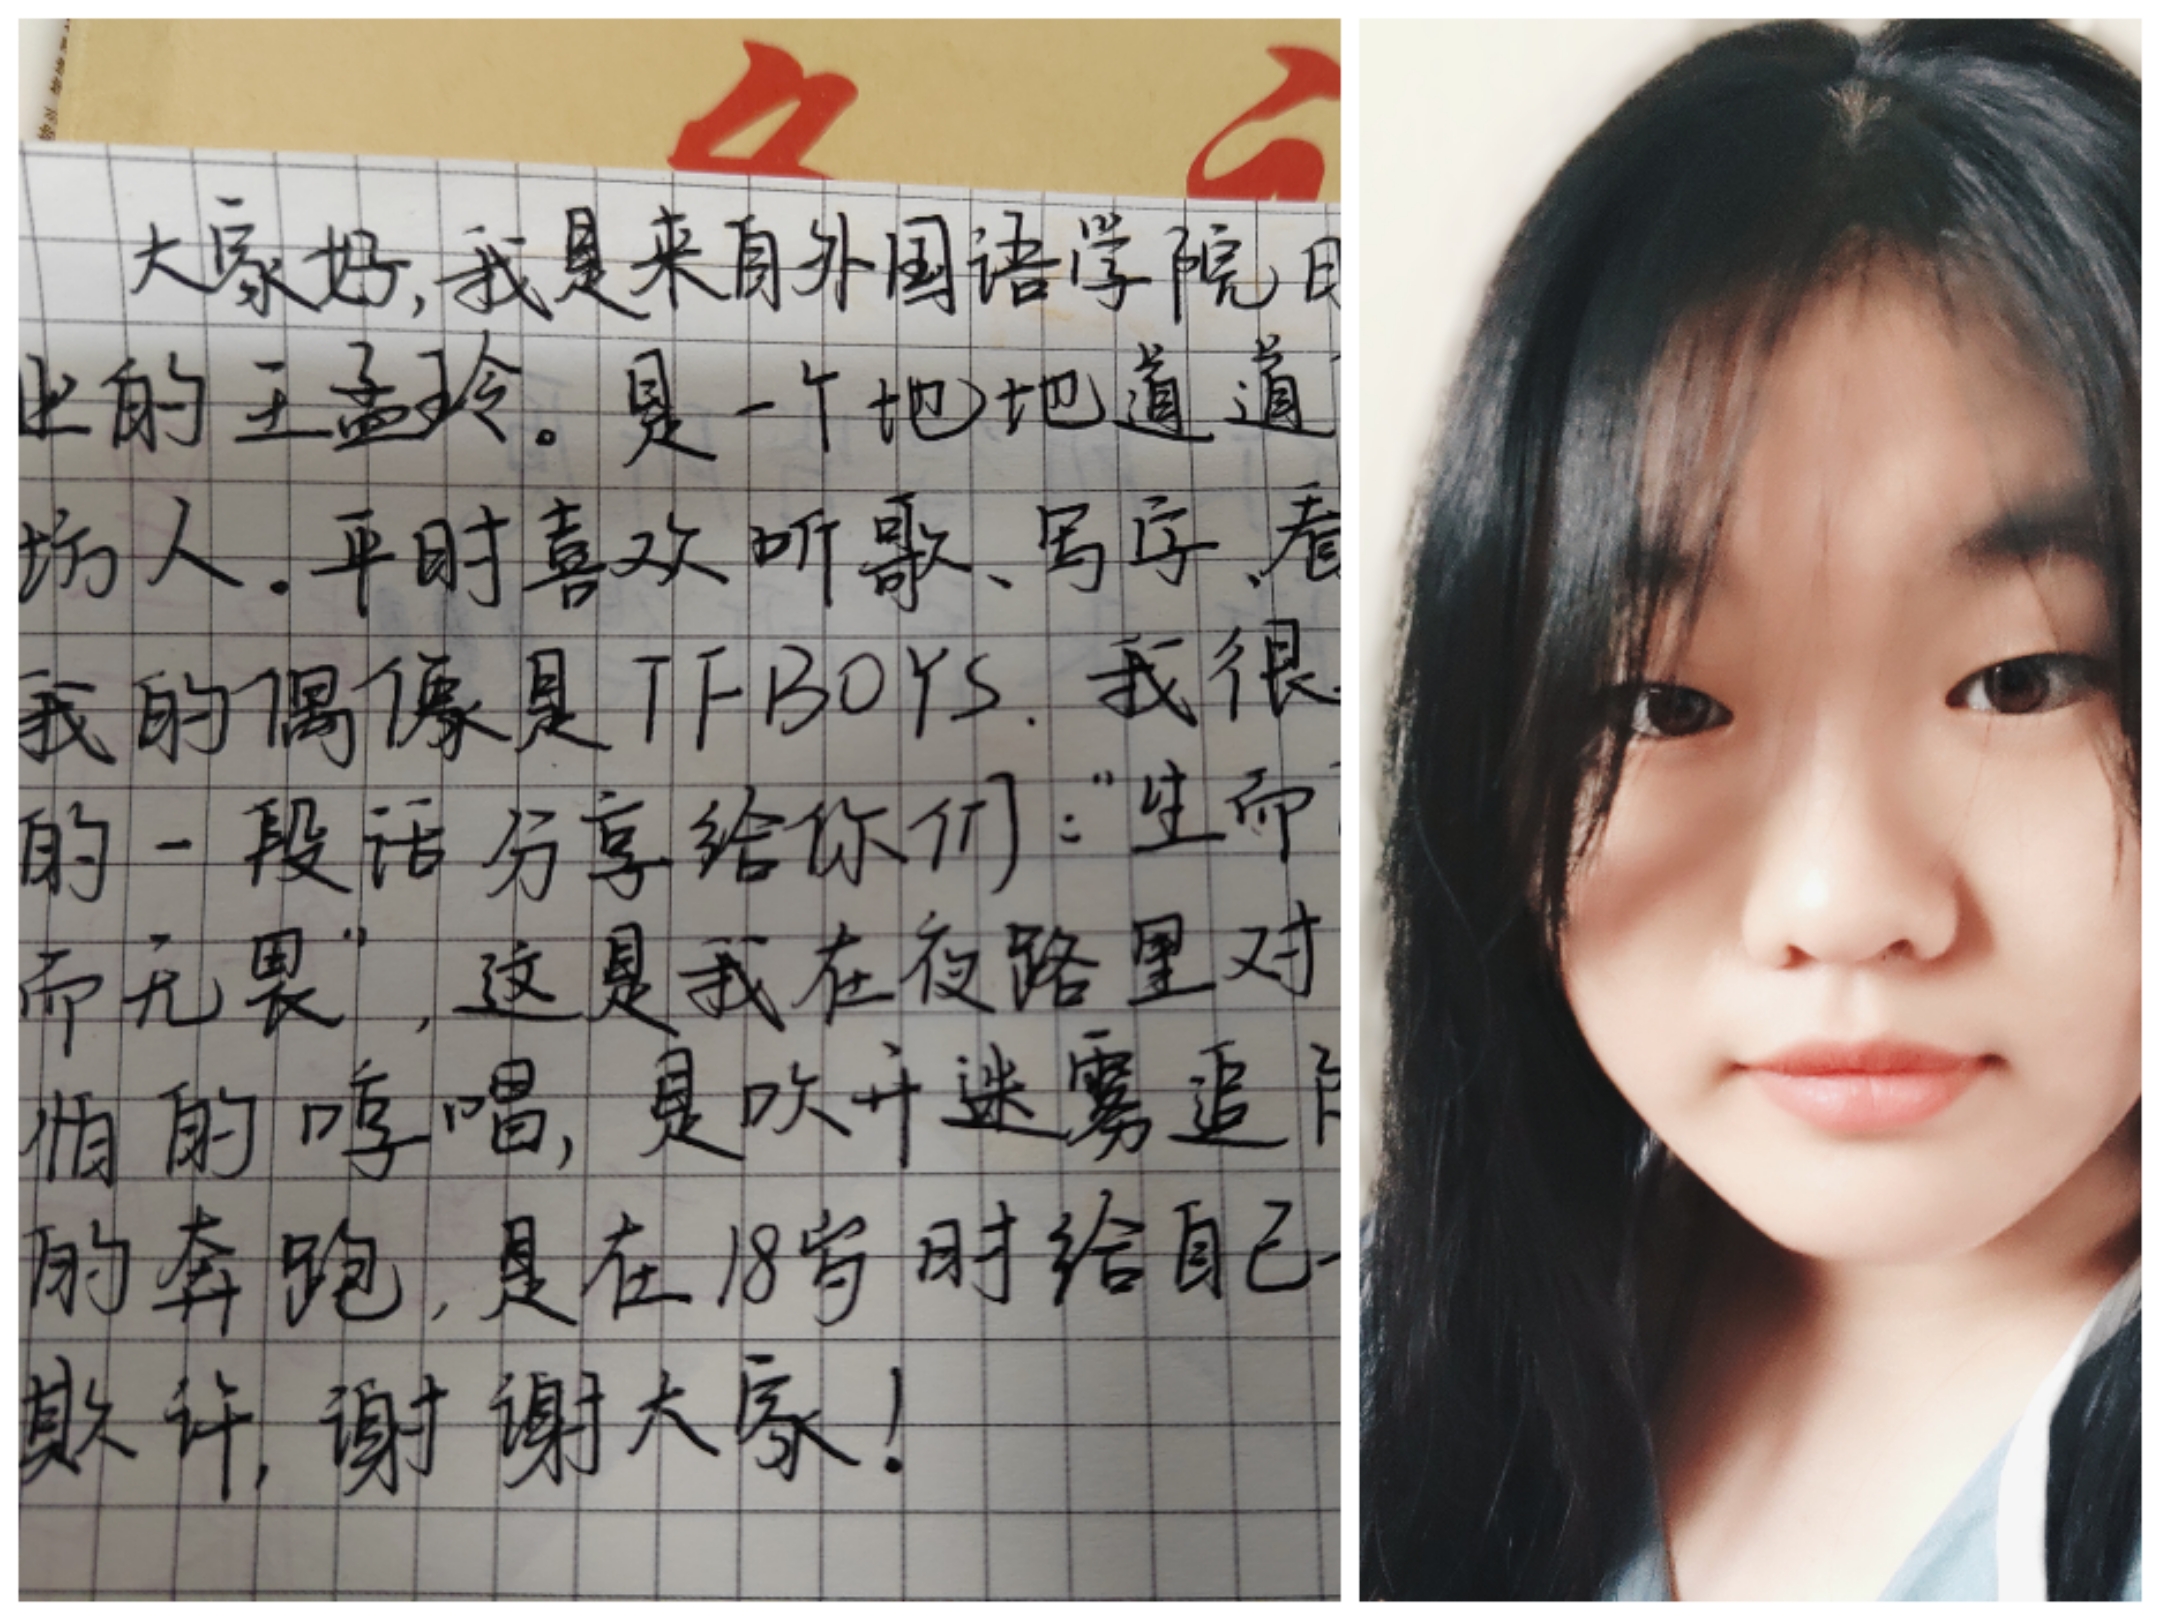 大家好,我是来自外国语学院日
业的王孟玲。是一个地地道道
坊人.平时喜欢听歌、写字、看
我的偶像是TFBOYS.我很
的一段话分享给你们:“生而
而无畏”,这是我在夜路里对
怕的哼唱,是吹开迷雾追
的奔跑,是在18岁时给自己
欺许,谢谢大家!